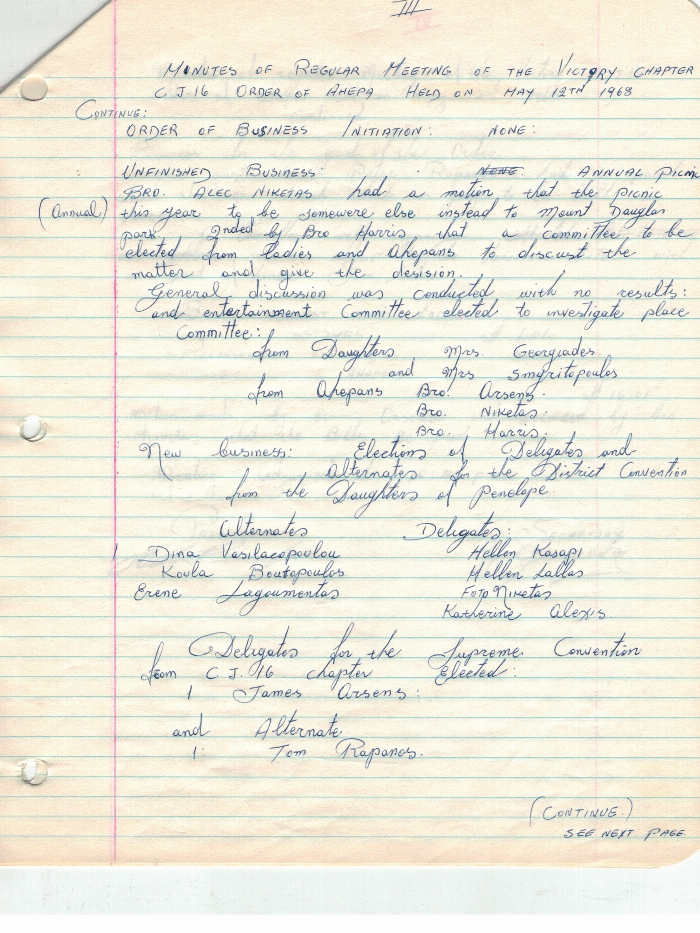 III
MINUTES OF REGULAR MEETING OF THE VICTORY CHAPTER
C J.16 ORDER OF AHEPA HELD ON MAY 12TH 1968
CONTINUE:
ORDER OF BUSINESS INITIATION: NONE:
UNFINISHED BUSINESS: NONE. ANNUAL PICNIC
BRO. ALEC NIKETAS had a motion that the PICNIC
(Annual) this year to be somewere else instead to Mount Douglas
park. 2nded by Bro Harris, that a committee to be
elected from Ladies and Ahepans to discust the
matter and give the desision.
General discussion was conducted with no results:
and entertainment Committee elected to investigate place
Committee:
from Daughters Mrs Georgiades.
and Mrs Smyritopoulos
from Ahepans Bro. Arsens.
Bro. Niketas.
Bro. Harris.
New business: Elections of Deligates and
Alternates for the District Convention
from the Daughters of Penelope.
Alternates Deligates:
1 Dina Vasilacopoulou Hellen Kasapi
Koula Boutopoulos Hellen Lallas
Erene Lagoumentas Foto Niketas
Katherine Alexis
Deligates for the Supreme Convention
from C.J.16 chapter Elected:
1 James Arsens:
and Alternate
1: Tom Rapanos.
(CONTINUE.)
SEE NEXT PAGE